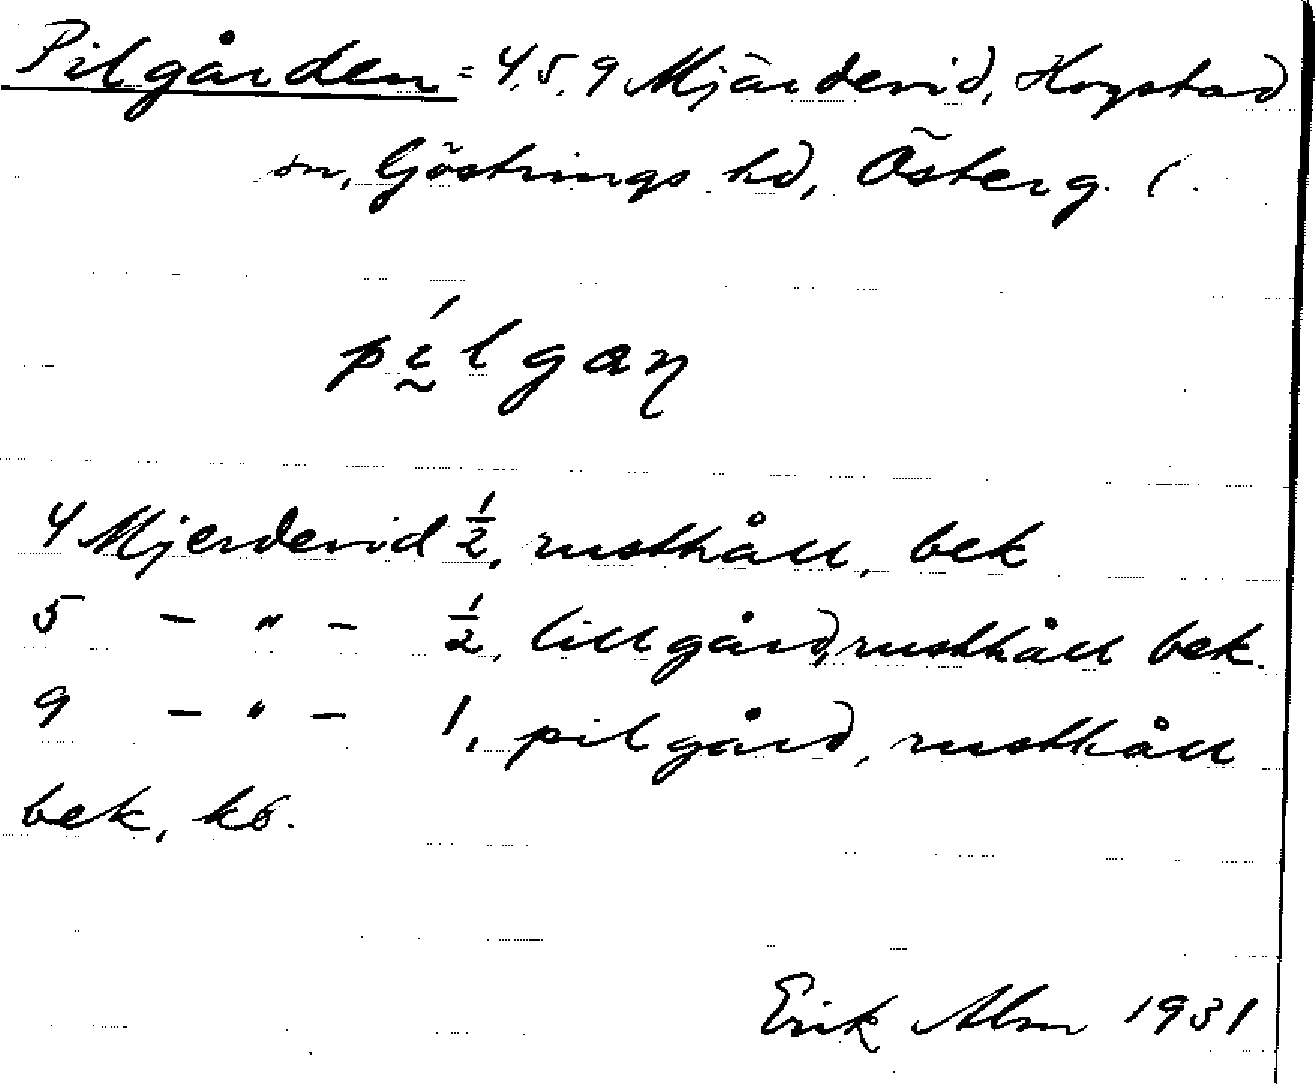 Pilgården = 4, 5, 9 Mjärdevid, Hogstad
sn, Göstrings hd, Österg. l.
pílgaꞃ
4 Mjerdevid 1/2, rusthåll, bek
5 - " - 1/2, lillgård, rusthåll bek.
9 - " - 1, pilgård, rusthåll
bek, kö.
Erik Alm 1931